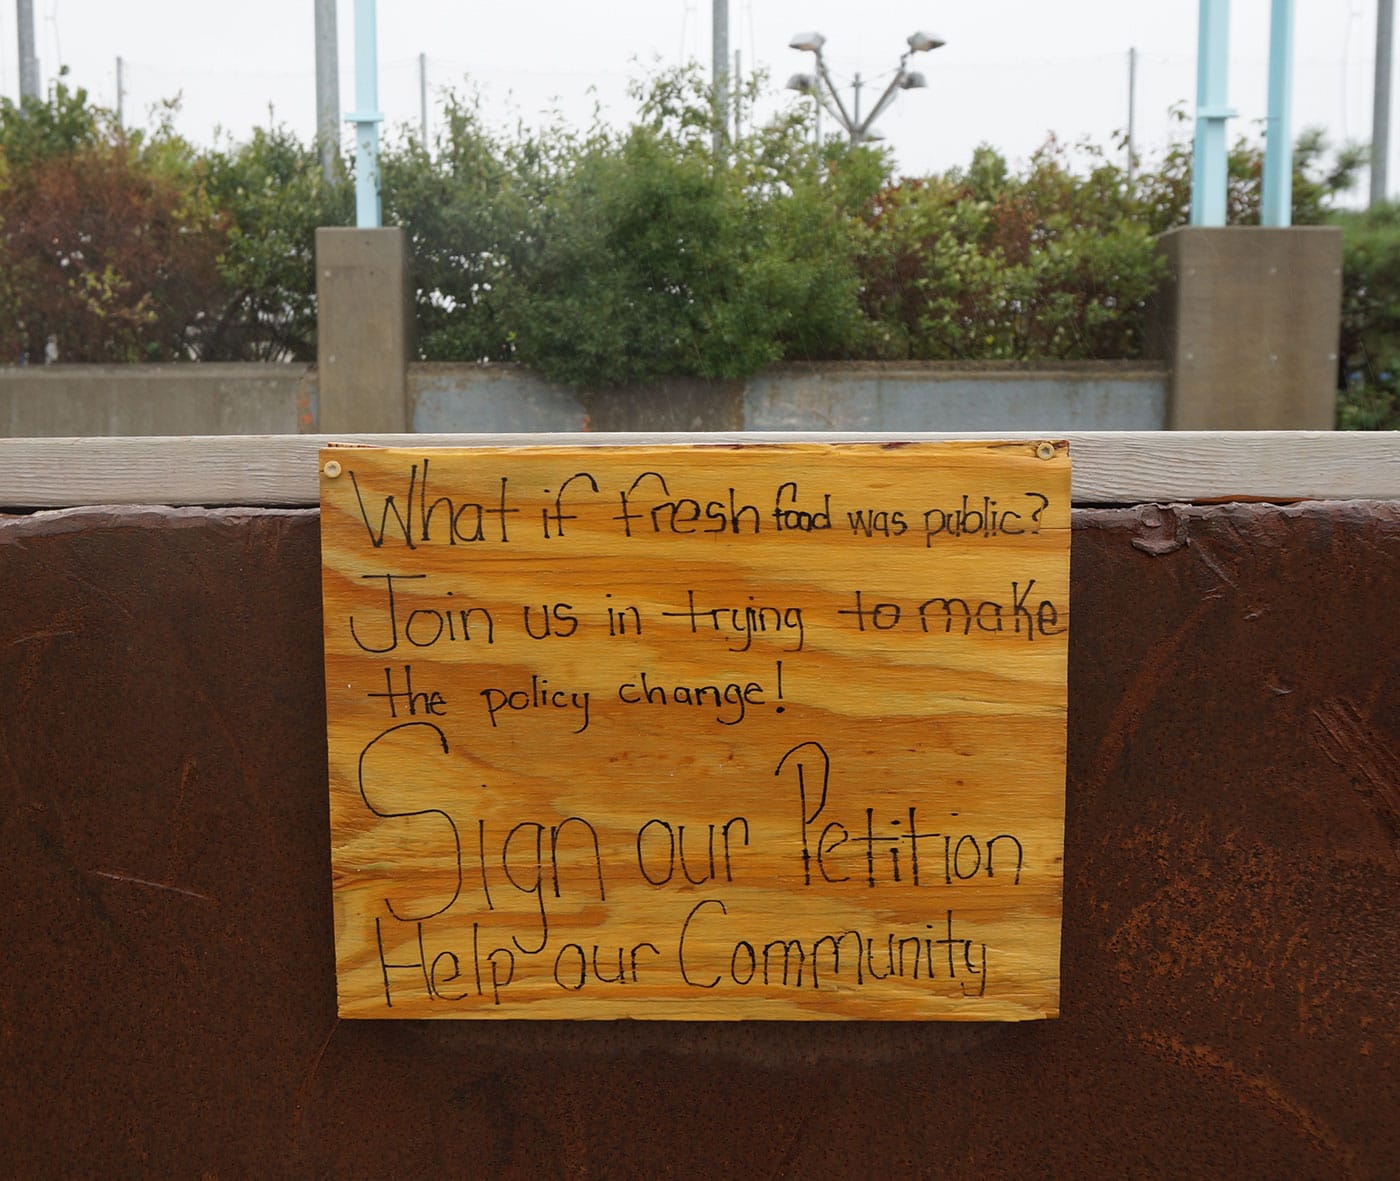 What if fresh food was public?
Join us in trying to make
the policy change!
Sign our Petition
Help our Community